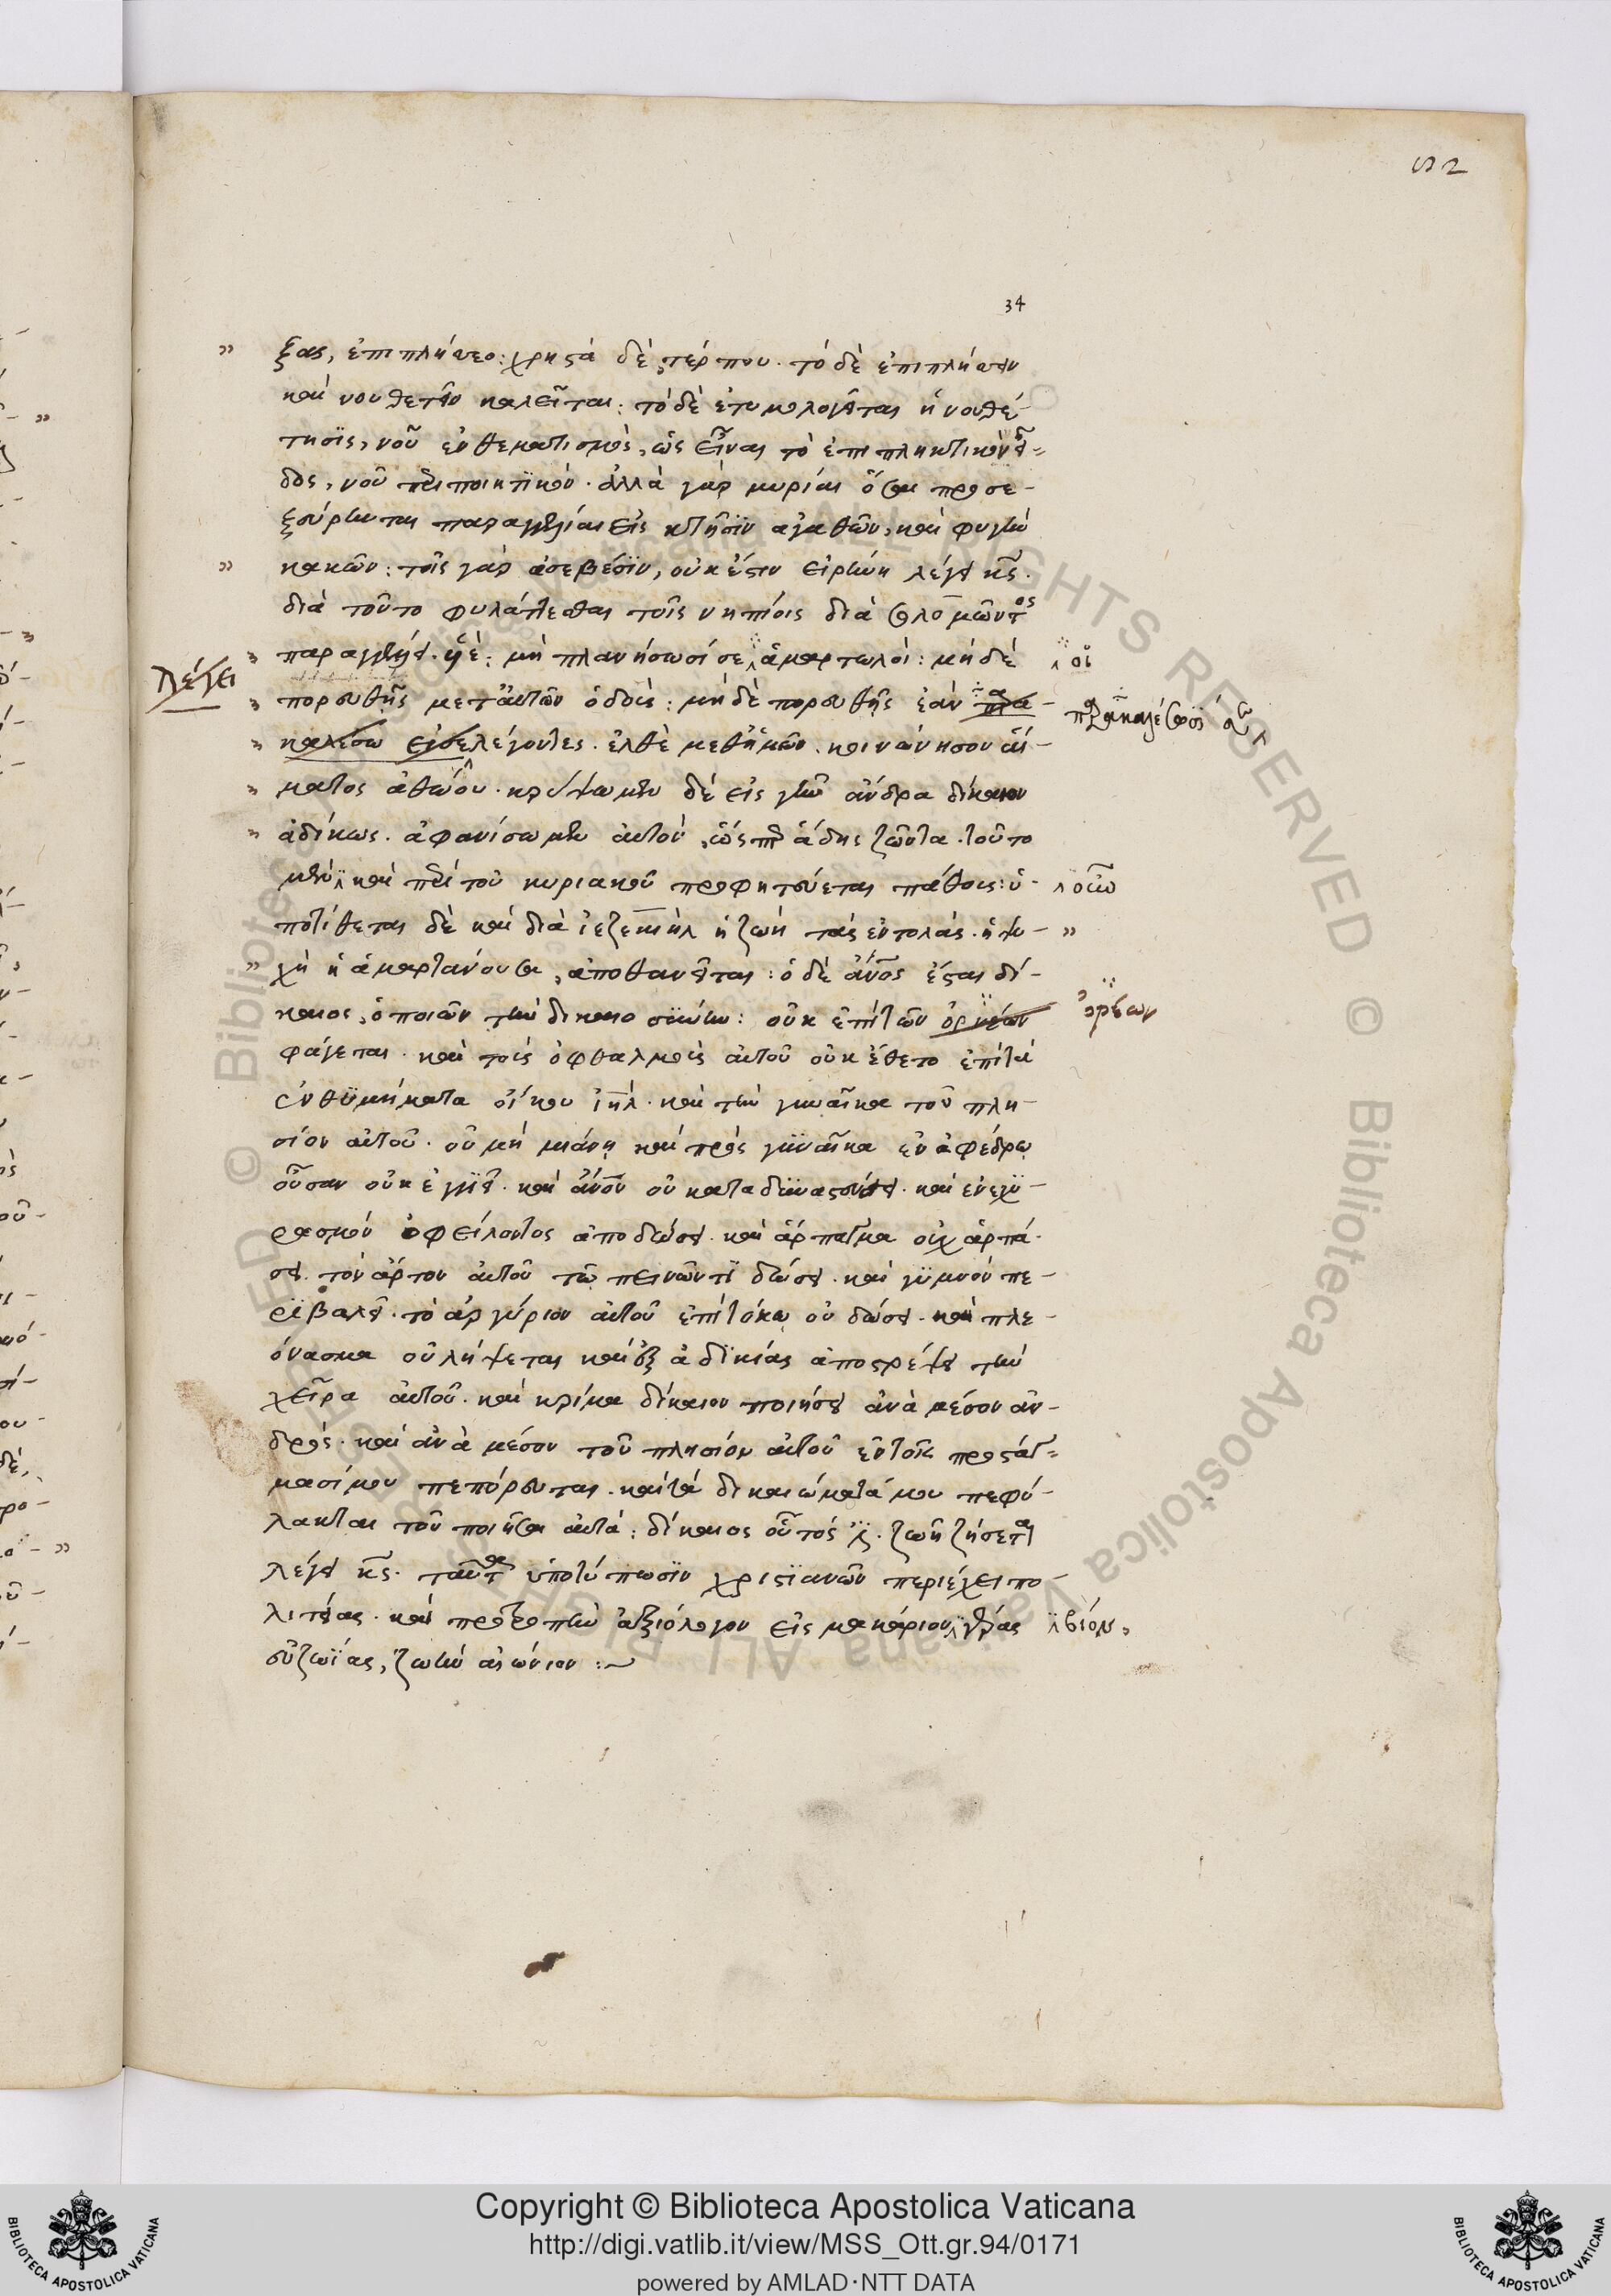 82
34
ξας, ἐπιπλήσσεο: χρηστὰ δὲ τέρπου. τὸ δὲ ἐπιπλήσσειν
καὶ νουθετεῖν καλεῖται: τὸ δὲ ἐτυμολογεῖται ἡ νουθέ-
τησϊς, νοῦ ἐνθεματισμὸς, ὡς εἶναι τὸ ἐπιπληκτικὸν εἶ-
δος, νοῦ περιποιητϊκόν. ἀλλὰ γὰρ μυρίαι ὅσαι προσε-
ξεύρηνται παραγγελίαι εἰς κτῆσϊν ἀγαθῶν, καὶ φυγὴν
κακῶν: τοῖς γὰρ ἀσεβέσϊν, οὐκ ἔστιν εἰρήνη λέγει κς̅.
διὰ τοῦτο φυλάττεσθαι τοῖς νηπίοις διὰ σολομῶντος
παραγγέλλει. υἱὲ: μὴ πλανήσωσί σε ἁμαρτωλοὶ: μὴ δὲ
λέγει
οἱ
πορευθῇς μετ' αὐτῶν ὁδοὺς: μὴ δὲ πορευθῇς ἐὰν παρα-
παρακαλέσωσϊ σε
καλέσω σε λέγοντες. ἐλθὲ μεθ' ἡμῶν. κοινώνησον αἵ-
ματος ἀθώου. κρύψωμεν δὲ εἰς γῆν ἄνδρα δίκαιον
ἀδίκως. ἀφανίσωμεν αὐτὸν, ὥσπερ ἅδης ζῶντα. τοῦτο
μὲν καὶ περὶ τοῦ κυριακοῦ προφητεύεται πάθους: ὑ-
οὖν
ποτίθεται δὲ καὶ διὰ ἰεζεκιὴλ ἡ ζωὴ τὰς ἐντολάς. ἡ ψυ-
χὴ ἡ ἁμαρτάνουσα, ἀποθανεῖται: ὁ δὲ ἄνος ἔσται δί-
καιος, ὁ ποιῶν τὴν δικαιοσύνην: οὐκ ἐπὶ τῶν ὀρνέων
ὀρέων
φάγεται. καὶ τοὺς ὀφθαλμοὺς αὐτοῦ οὐκ ἔθετο ἐπὶ τὰ
ἐνθϋμήματα οἴκου ιη̅λ. καὶ τὴν γυναῖκα τοῦ πλη-
σίον αὐτοῦ. οὐ μὴ μιάνῃ καὶ πρὸς γϋναῖκα ἐν ἀφέδρῳ
οὖσαν οὐκ ἐγγϊεῖ. καὶ ἄνον οὐ καταδϋναστεύσει. καὶ ἐνεχϋ-
ρασμὸν ὀφείλοντος ἀποδώσει. καὶ ἅρπαγμα οὐχ ἁρπά-
σει. τὸν ἄρτον αὐτοῦ τῷ πεινῶντϊ δώσει. καὶ γϋμνὸν πε-
ρϊβαλεῖ. τὸ ἀργύριον αὐτοῦ ἐπὶ τόκῳ οὐ δώσει. καὶ πλε-
όνασμα οὐ λήψεται καὶ ἐξ ἀδϊκίας ἀποστρέψει τὴν
χεῖρα αὐτοῦ. καὶ κρίμα δίκαιον ποιήσει ἀνὰ μέσον ἀν-
δρὸς. καὶ ἀνὰ μέσον τοῦ πλησίον αὐτοῦ ἐν τοῖς προστάγ-
μασί μου πεπόρευται. καὶ τὰ δικαιώματά μου πεφύ-
λακται τοῦ ποιῆσαι αὐτά: δίκαιος οὗτός ἐστι. ζωῇ ζήσεται
λέγει κς̅. ταῦτα ὑποτύπωσϊν χριστϊανῶν περιέχει πο-
λιτείας. καὶ προτροπὴν ἀξιόλογον εἰς μακάριον γῆρας
βίον,
εὐζωΐας, ζωὴν αἰώνιον :~
Copyright © Biblioteca Apostolica Vaticana
http://digi.vatlib.it/view/MSS_Ott.gr.94/0171
powered by AMLAD·NTT DATA